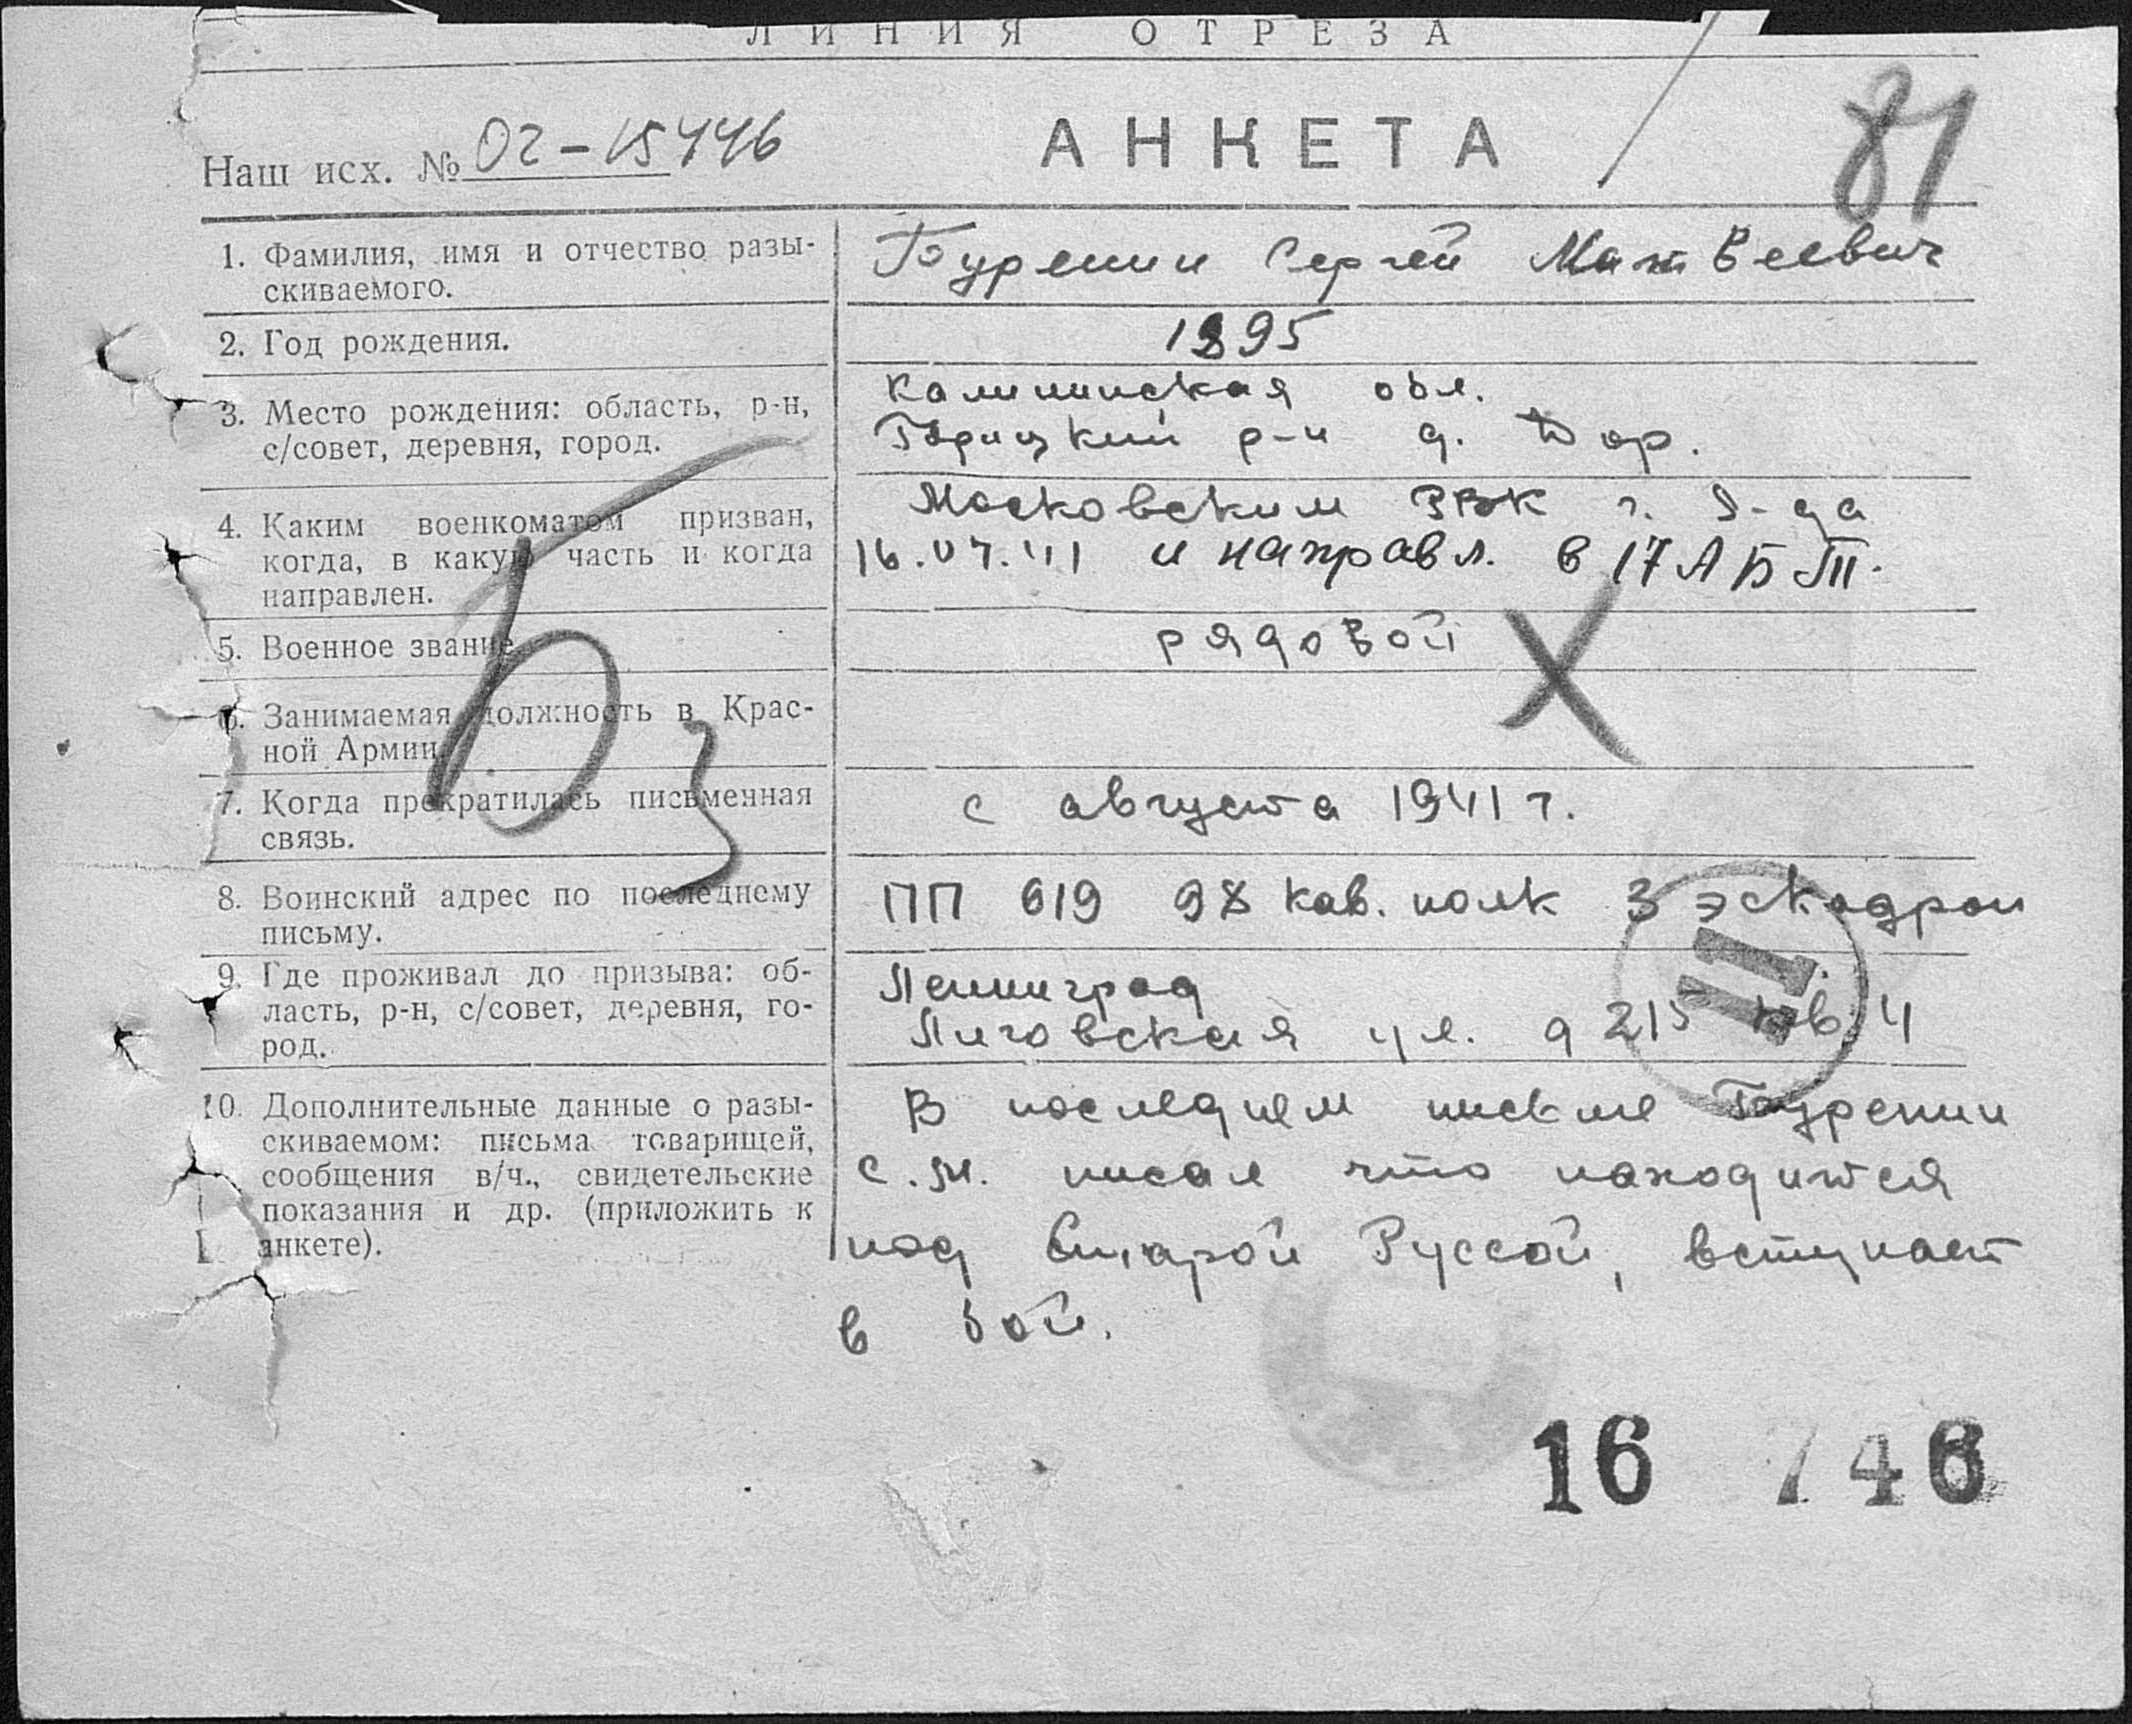 ЛИНИЯ ОТРЕЗА
81
Наш исх. № 02-15446
АНКЕТА
1. Фамилия, имя и отчество разы-
скиваемого.
Буренин Сергей Матвеевич
2. Год рождения.
1895
3. Место рождения: область, р-н,
с/совет, деревня, город.
Калининская обл.
Горицкий р-н д. Дор.
4. Каким военкоматом призван,
когда, в какую часть и когда
направлен.
Московским РВК г. Л-да
16.07.41 и направл. в 17 А Б П.
5. Военное звание
рядовой
Х
6. Занимаемая должность в Крас-
ной Армии
7. Когда прекратилась письменная
связь.
с августа 1941 г.
Б
8. Воинский адрес по последнему
письму.
ПП 619 98 кав. полк 3 эскадрон
9. Где проживал до призыва: об-
ласть, р-н, с/совет, деревня, го-
род.
Ленинград
Лиговская ул. д 215 кв. 4
II
10. Дополнительные данные о разы-
скиваемом: письма товарищей,
сообщения в/ч., свидетельские
показания и др. (приложить к
анкете).
В последнем письме Буренин
С.М. писал что находится
под Старой Руссой, вступает
в бой.
16 746